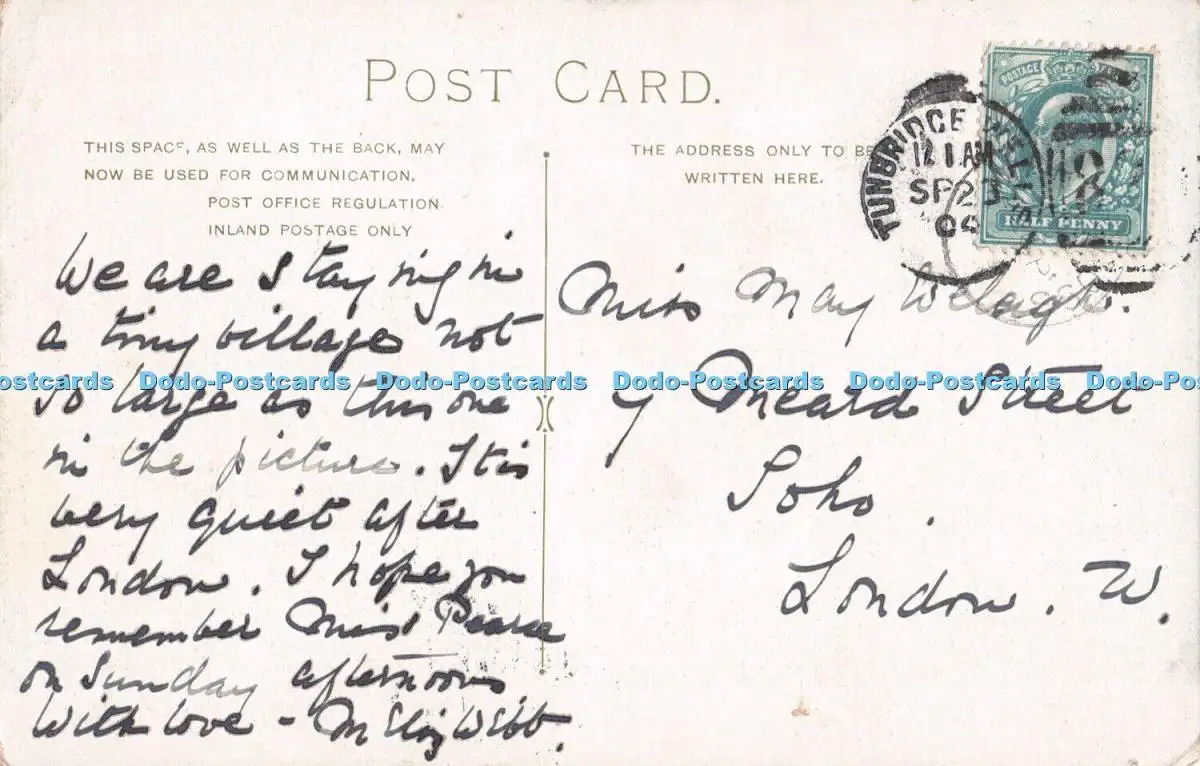 POST CARD.
THIS SPACE, AS WELL AS THE BACK, MAY
NOW BE USED FOR COMMUNICATION.
POST OFFICE REGULATION
INLAND POSTAGE ONLY
THE ADDRESS ONLY TO BE
WRITTEN HERE.
TUNBRIDGE WELLS
12 1 AM
SP 2
POSTAGE
HALF PENNY
We are staying in
a tiny village not
so large as this one
in the picture. It is
very quiet after
London. I hope you
remember Miss Pearce
on Sunday afternoons
With love - M Webb.
Miss May
Meard Street
Soho.
London. W.
Dodo-Postcards Dodo-Postcards Dodo-Postcards Dodo-Postcards Dodo-Postcards